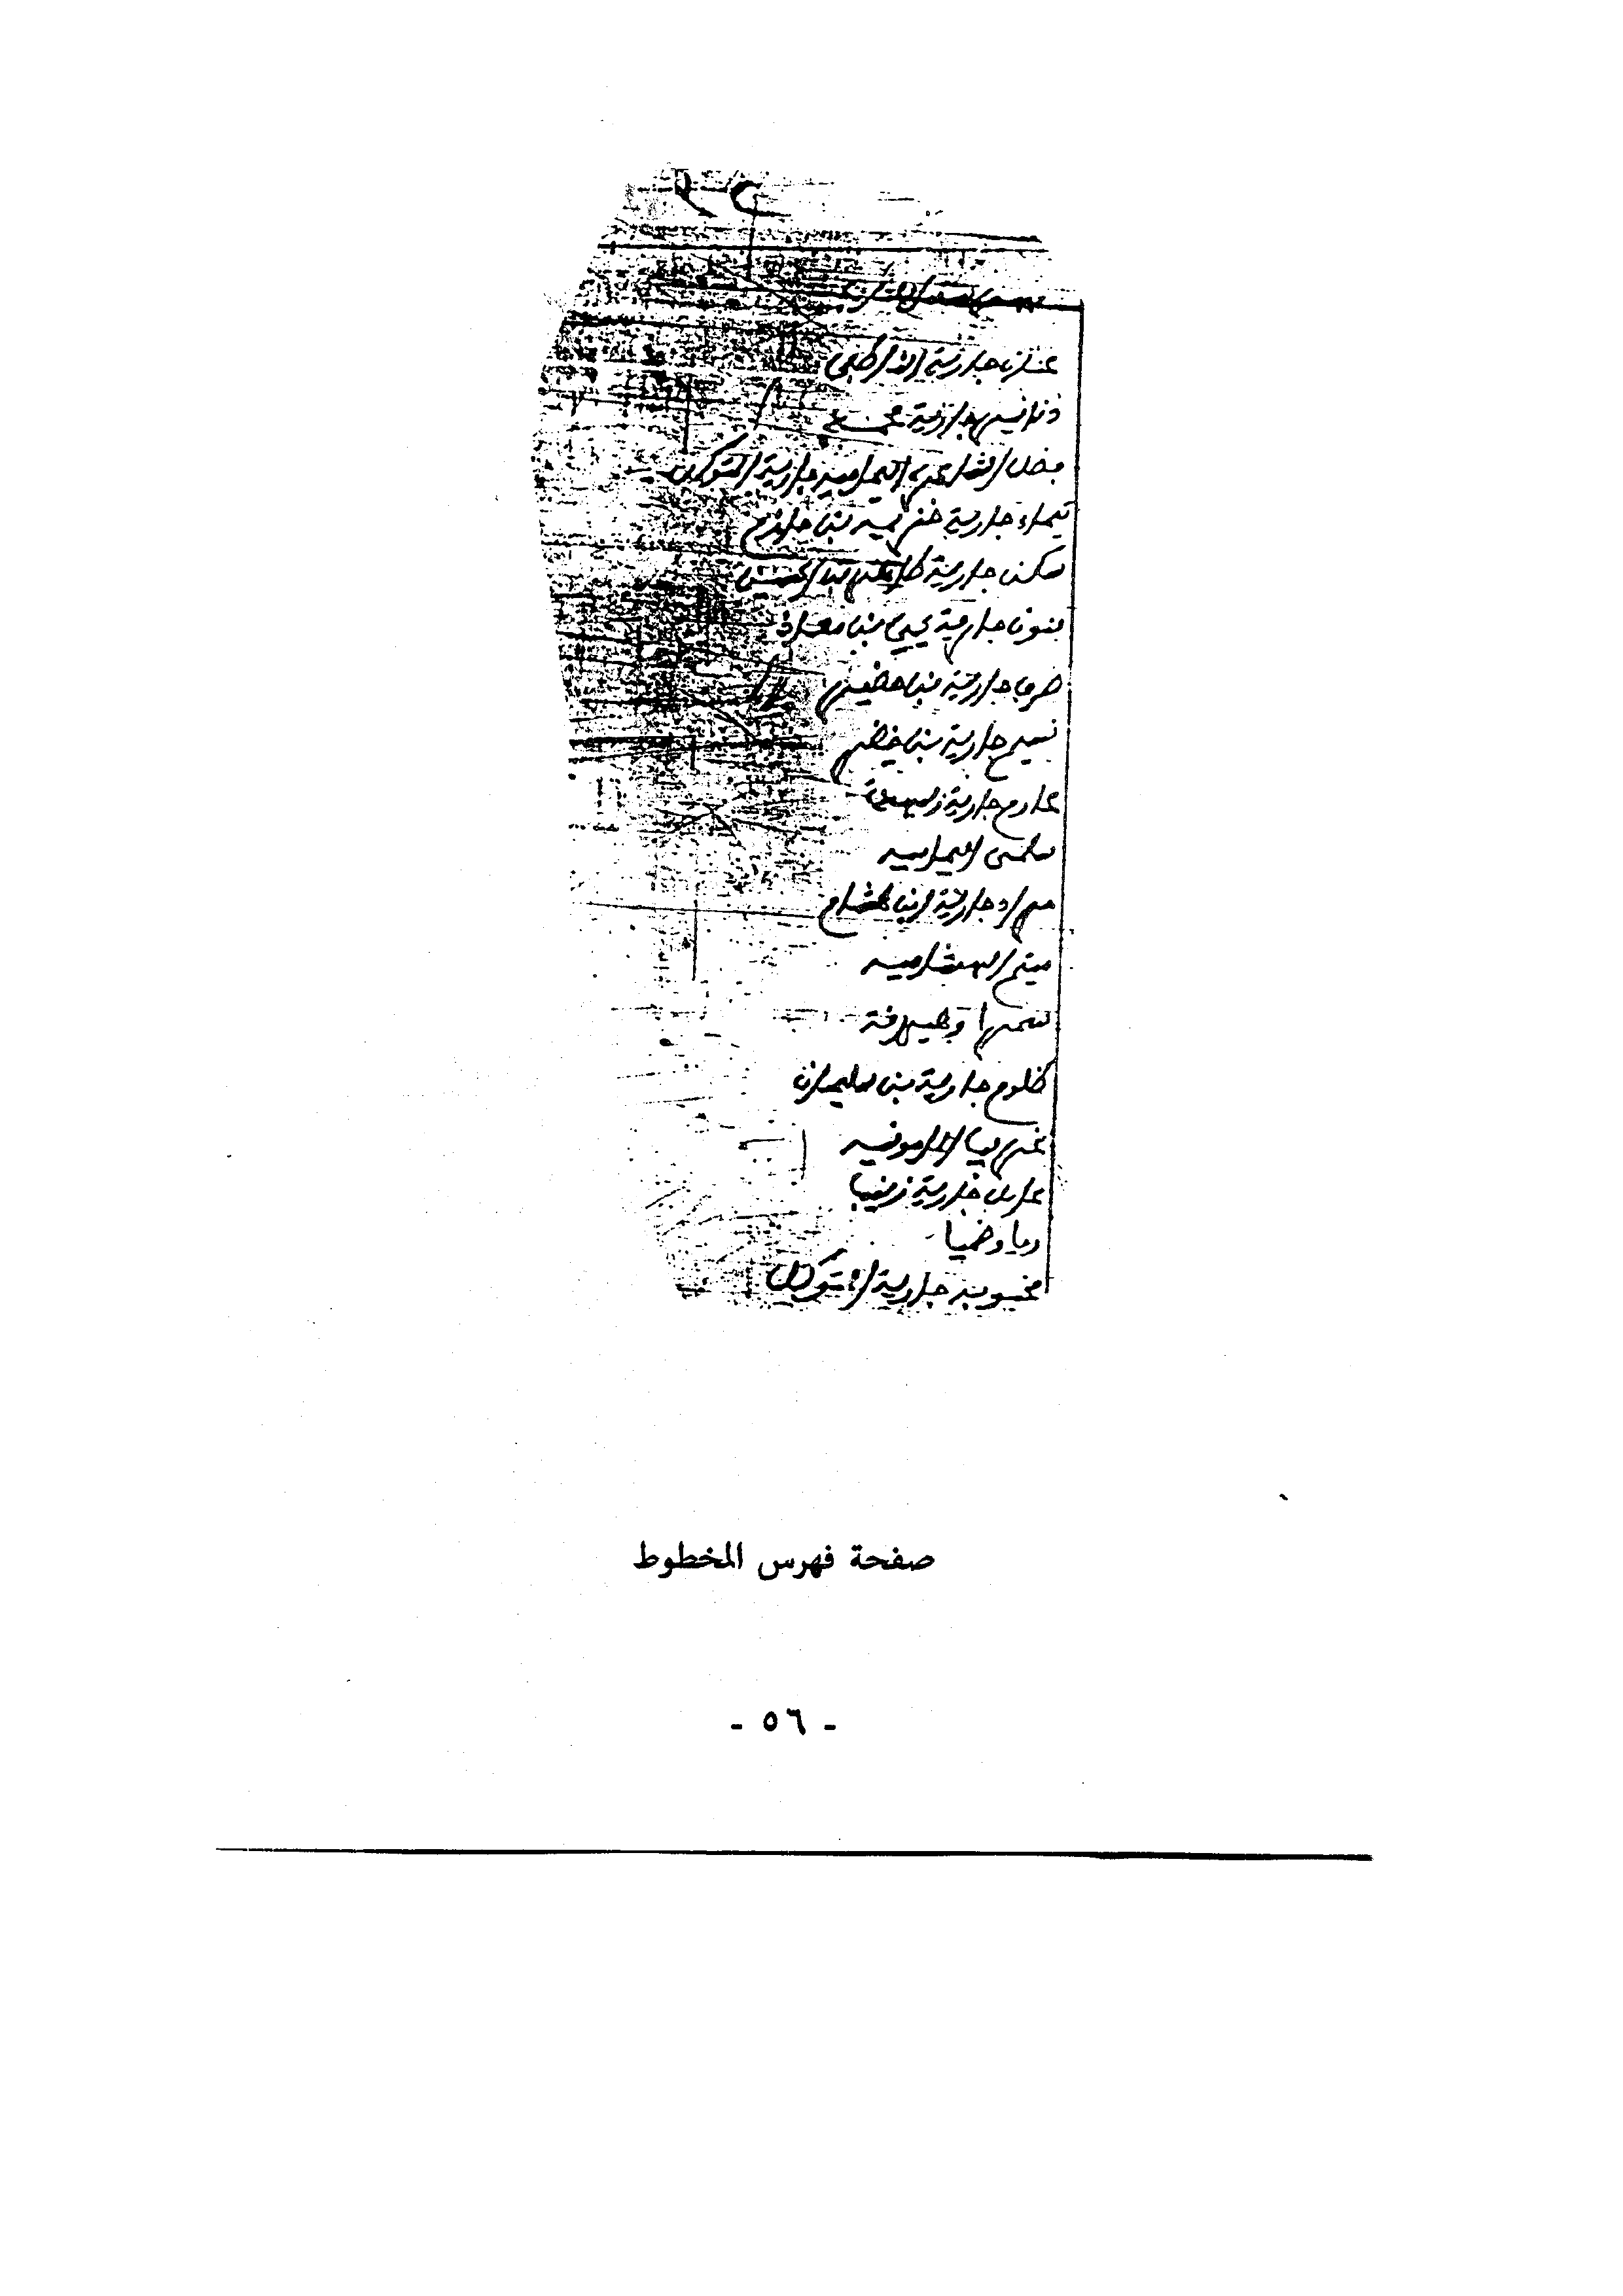 عنان جارية الناطفي
دنانير جارية محمد
فضل الشاعرة اليمامية جارية المتوكل
تيماء جارية خزيمة بن خازم
سكن جارية طاهر بن الحسين
فنون جارية يحيى بن معاذ
صرف جارية بن خضير
نسيم جارية بن خضير
عارم جارية
سلمى اليمامية
مراد جارية بن هشام
متيم الهشامية
سمراء وهيلانة
ظلوم جارية بن سليمان
عريب المامونية
عامل جارية زينب
ريا وظميا
محبوبة جارية المتوكل
صفحة فهرس المخطوط
- ٥٦ -